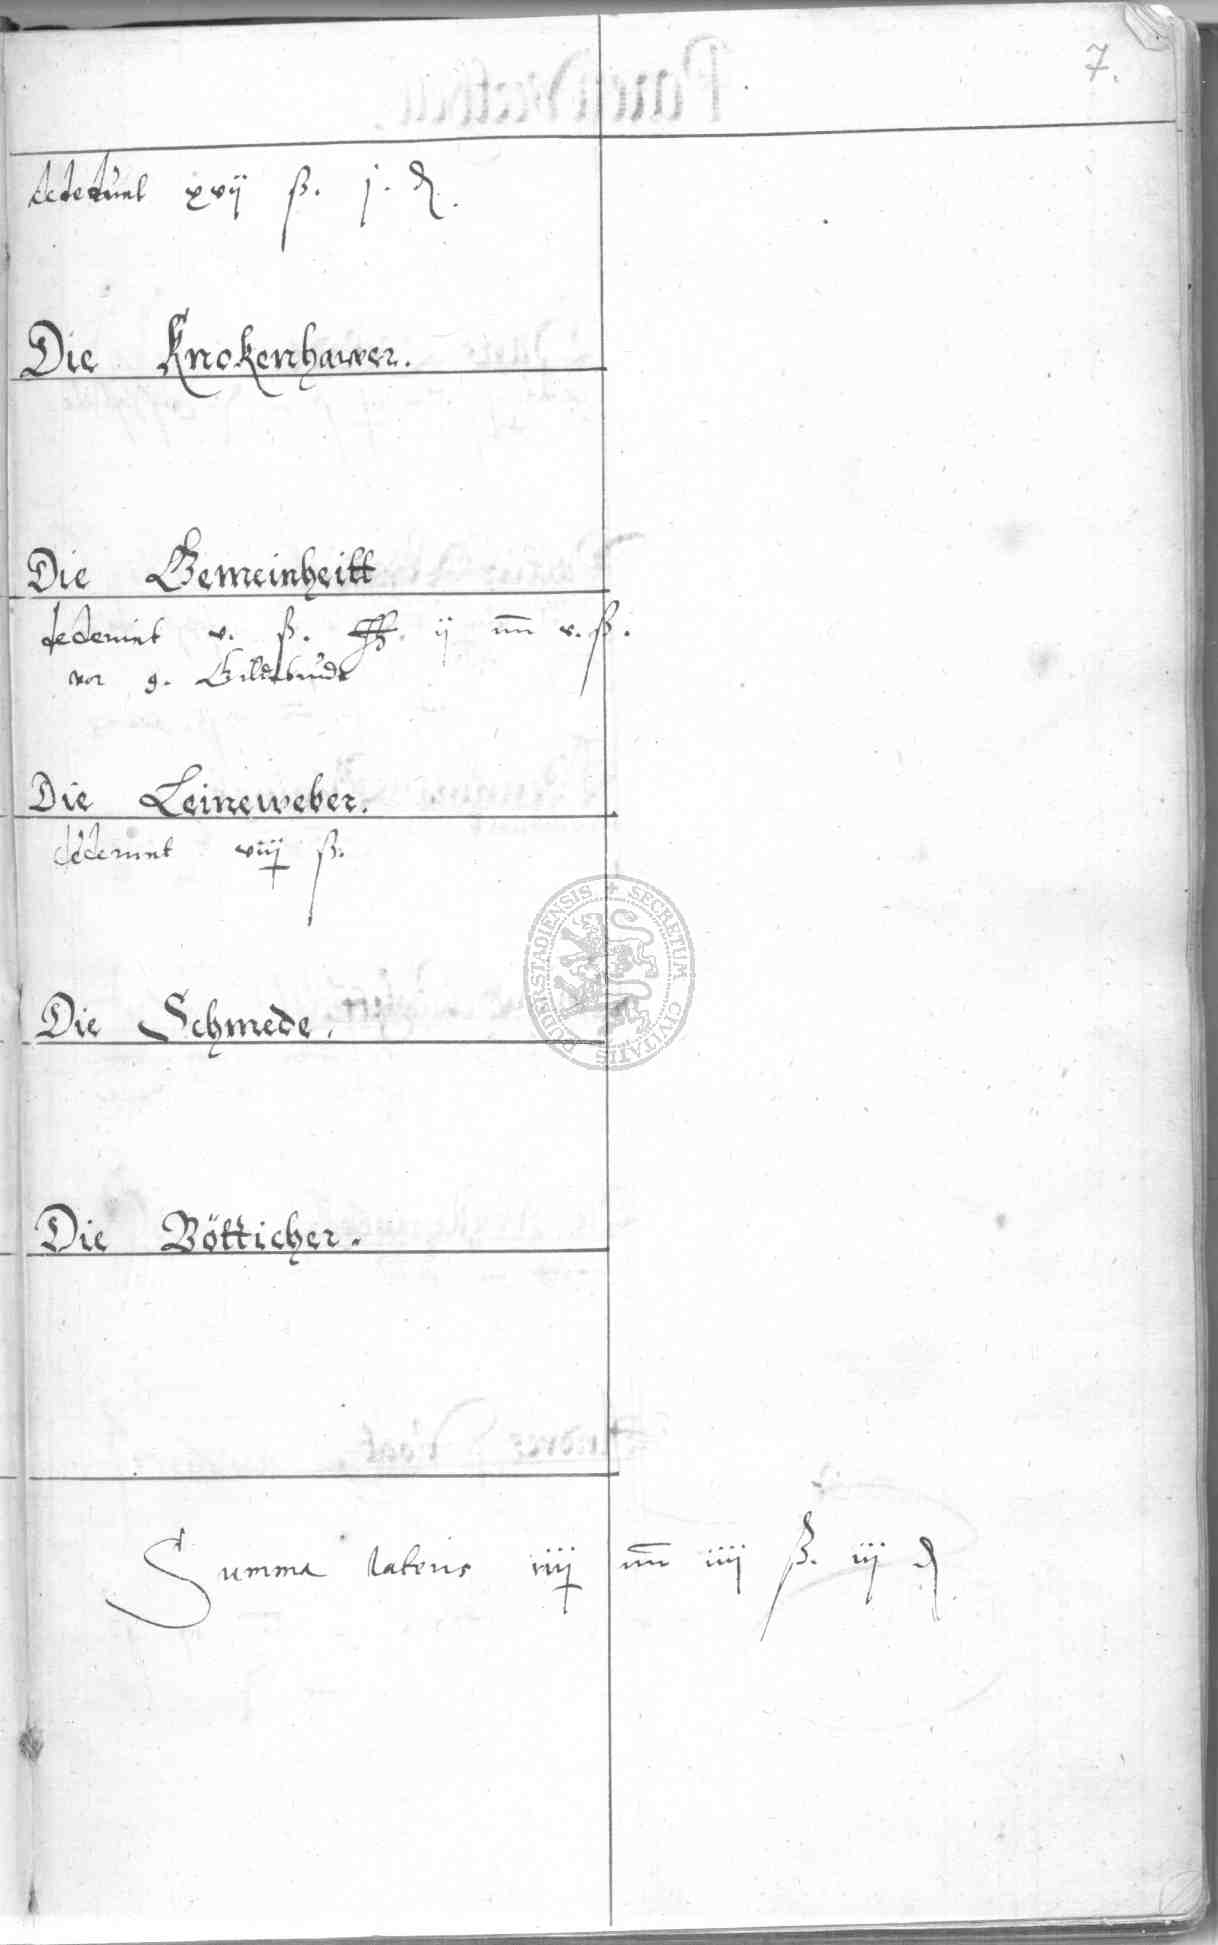 7.
dederunt xvij ß. j. ₰.
Die Knokenhawer.
Die Gemeinheitt
dederunt v. ß. ij v. ß.
vor g. Gildebrude
Die Leineweber.
dederunt viiij ß.
Die Schmede.
Die Bötticher.
Summa lateris iiij ß. iij ₰
SECRETUM CIVITATIS DUDERSTADIENSIS